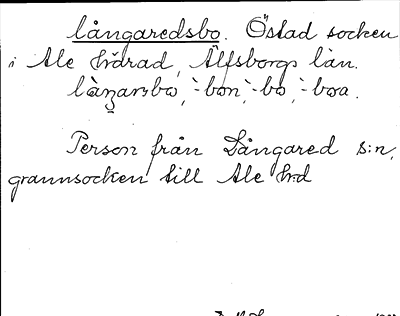 långaredsbo. Östad socken
i Ale härad, Älfsborgs län.
-bon, -bo, -boa.
Person från Långared s:n,
grannsocken till Ale hrd